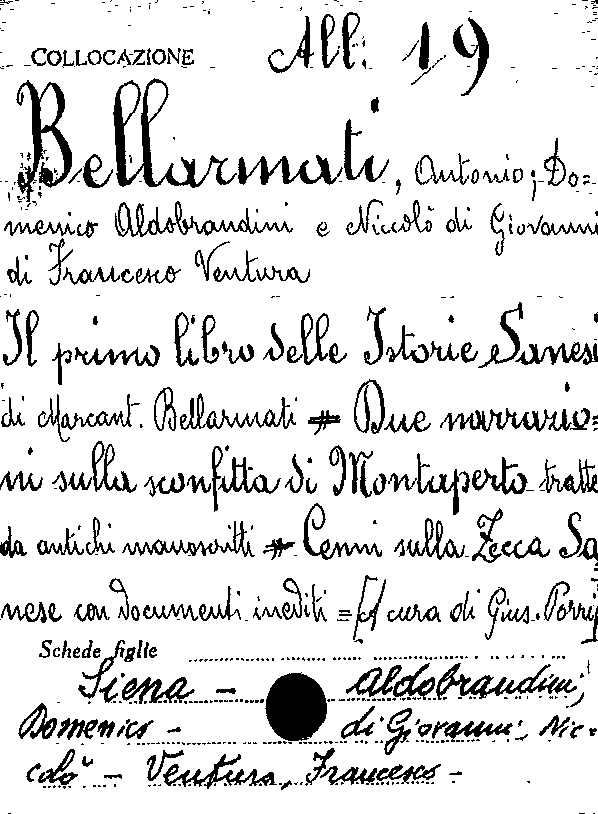 COLLOCAZIONE All: 19
Bellarmati, Antonio; Do=
menico Aldobrandini e Niccolò di Giovanni
di Francesco Ventura
Il primo libro delle Istorie Sanesi
di Marcant. Bellarmati = Due narrazio=
ni sulla sconfitta di Montaperto tratte
da antichi manoscritti = Cenni sulla Zecca Sa
nese con documenti inediti = [A cura di Gius. Porri]
Schede figlie
Siena — Aldobrandini,
Domenico — di Giovanni, Nic=
colò — Ventura, Francesco —